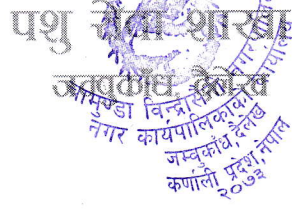 पशु सेवा शाखा
जम्वुकाँध दैलेख
चामुण्डा विन्द्रासैनी नगरपालिका
नगर कार्यपालिकाको कार्यालय
जम्वुकाँध, दैलेख
कर्णाली प्रदेश, नेपाल
२०७३